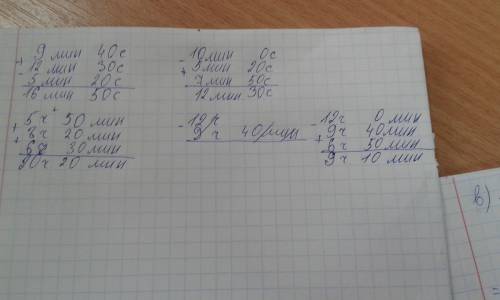 9 мин 40с
+ 12 мин 30с
- 5 мин 20с
16 мин 50с
- 10 мин 0с
+ 5 мин 20с
7 мин 50с
12 мин 30с
+ 5ч 50 мин
+ 8ч 20 мин
6ч 30 мин
20ч 20 мин
- 19ч
9ч 40 мин
- 19ч 0 мин
+ 9ч 40мин
6ч 50 мин
9ч 10 мин
в)